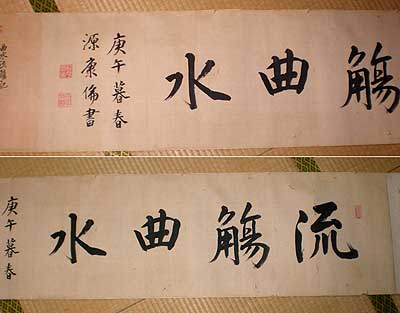 觴曲水
庚午暮春
源書
流觴曲水
庚午暮春